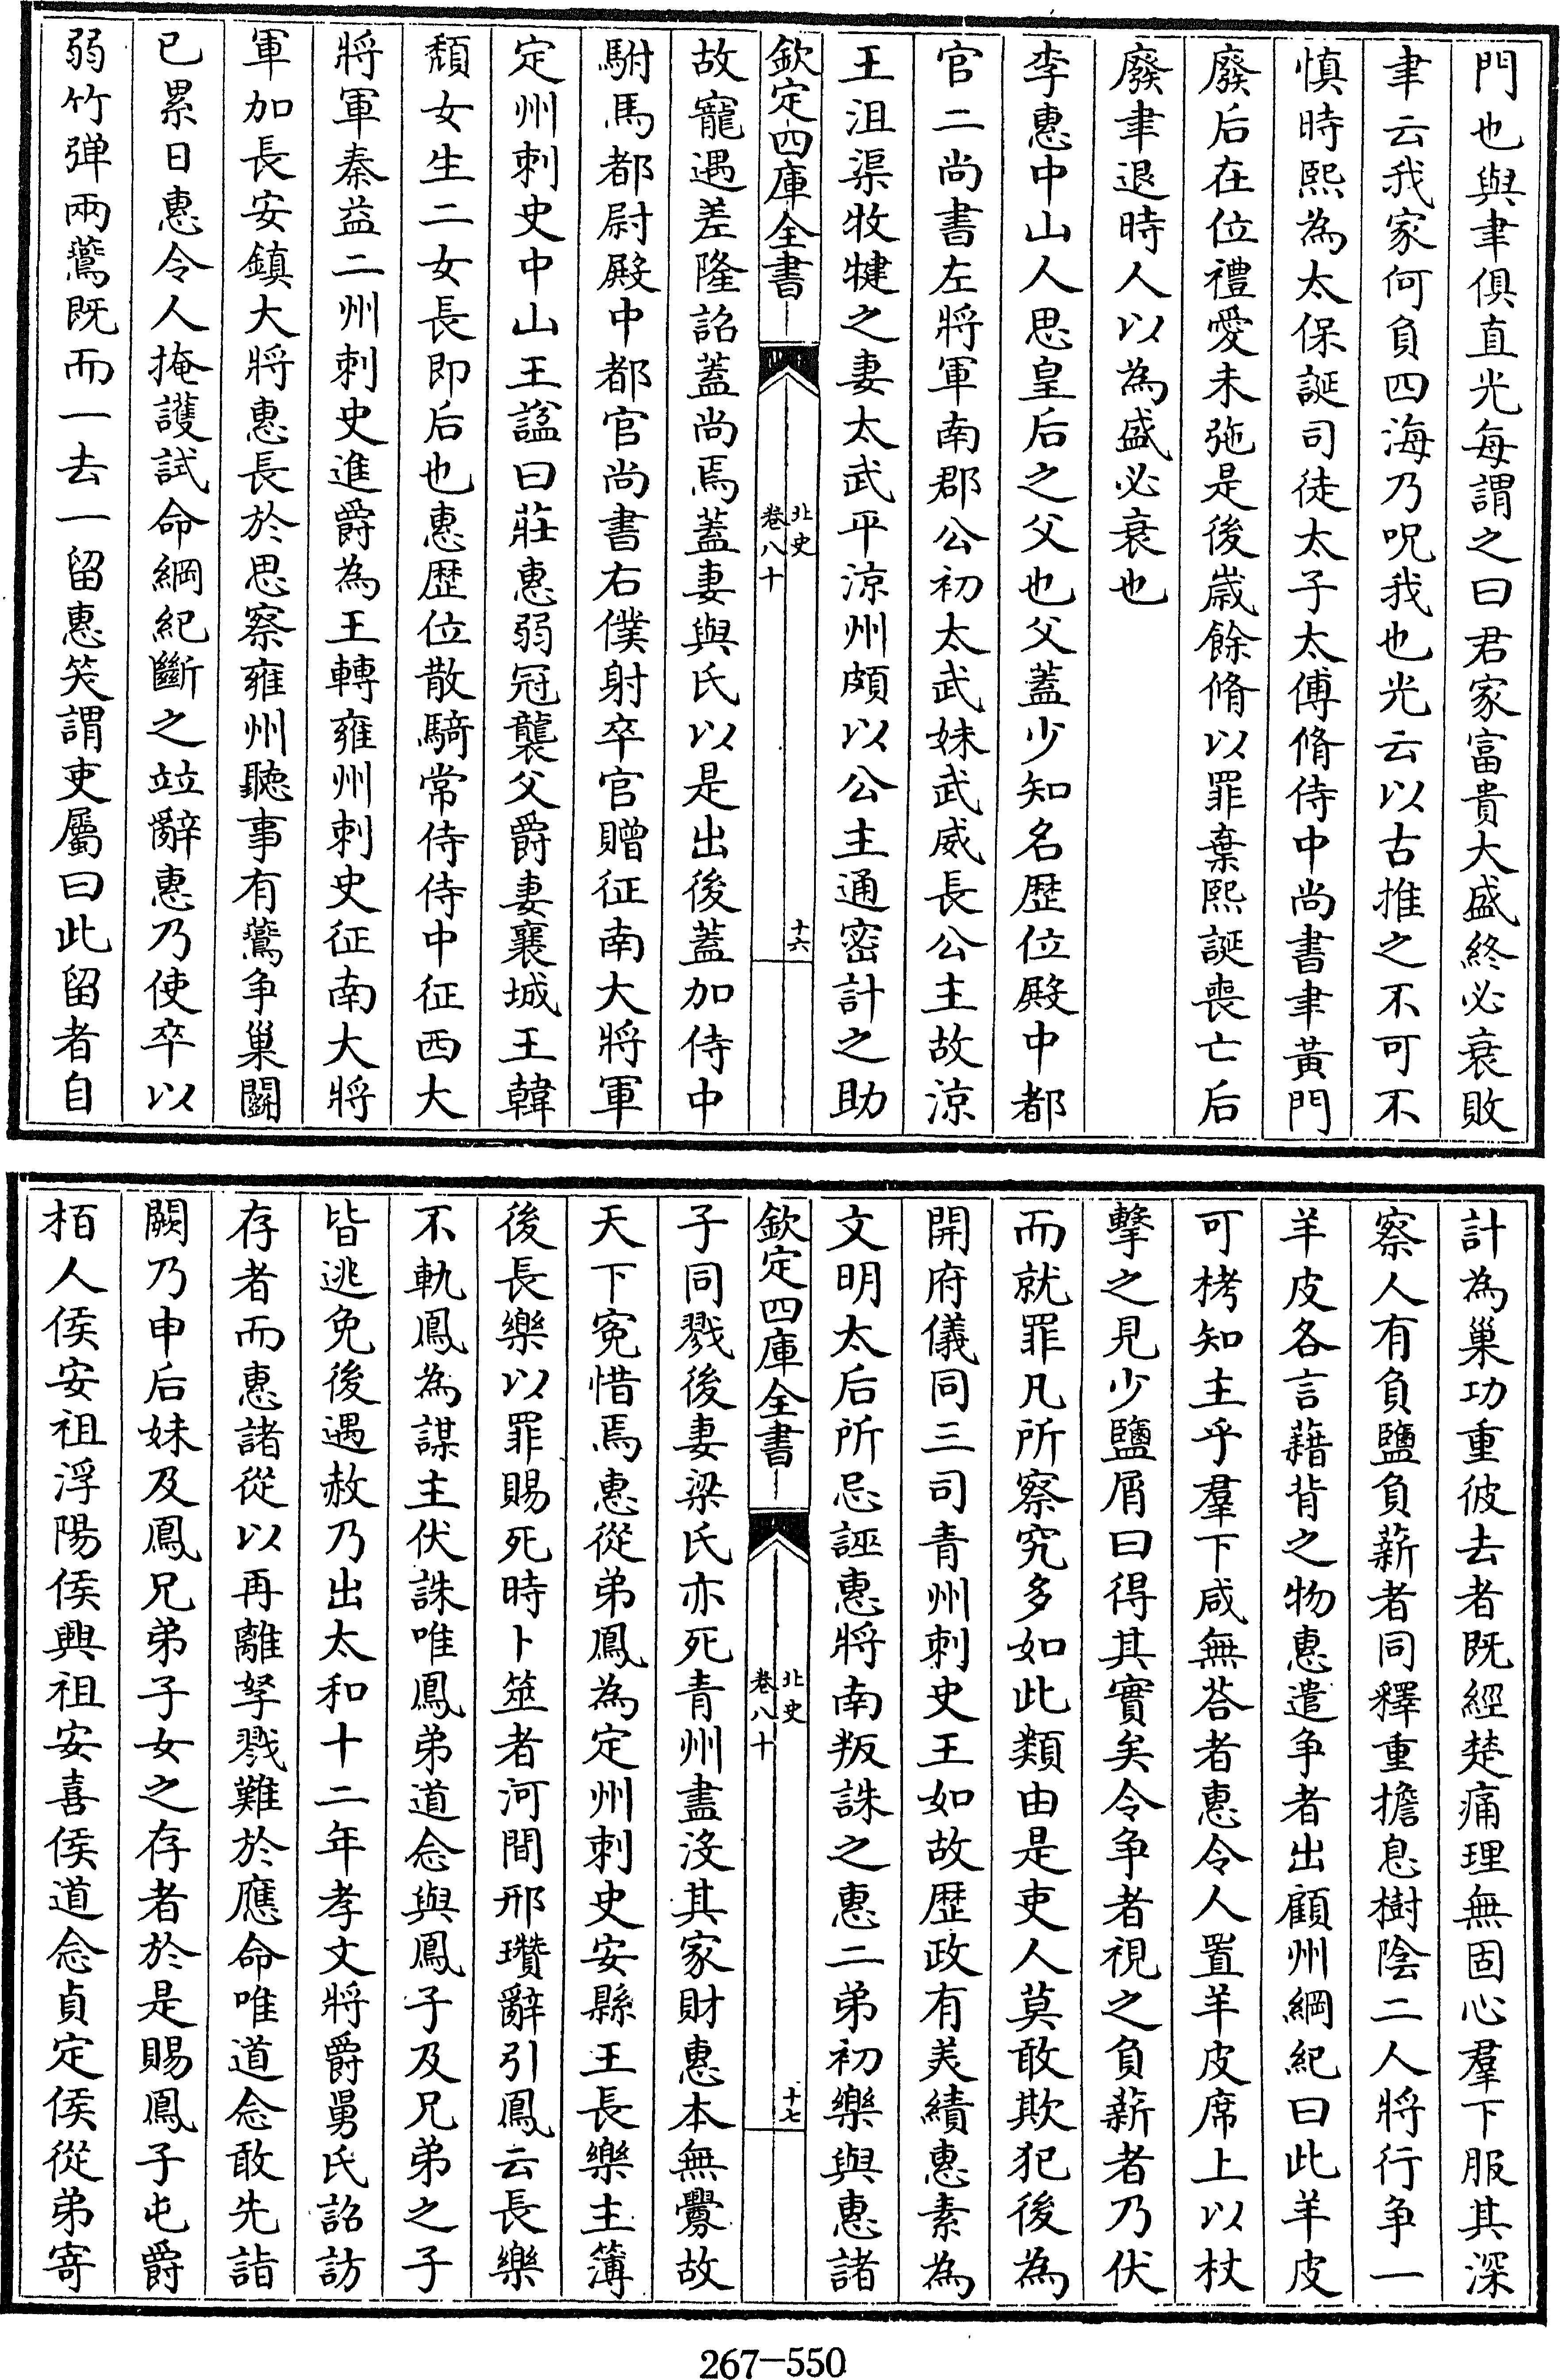 門也與聿俱直光每謂之曰君家富貴大盛終必衰敗
聿云我家何負四海乃呪我也光云以古推之不可不
慎時熙為太保誕司徒太子太傅脩侍中尚書聿黃門
廢后在位禮愛未弛是後嵗餘脩以罪棄熙誕喪亡后
廢聿退時人以為盛必衰也
李惠中山人思皇后之父也父蓋少知名歴位殿中都
官二尚書左將軍南郡公初太武妹武威長公主故涼
王沮渠牧犍之妻太武平涼州頗以公主通密計之助
欽定四庫全書
北史
卷八十
十六
故寵遇差隆詔蓋尚焉蓋妻與氏以是出後蓋加侍中
駙馬都尉殿中都官尚書右僕射卒官贈征南大將軍
定州刺史中山王諡曰莊惠弱冠襲父爵妻襄城王韓
頽女生二女長即后也惠歴位散騎常侍侍中征西大
將軍秦益二州刺史進爵為王轉雍州刺史征南大將
軍加長安鎮大將惠長於思察雍州聽事有鷰争巢鬭
已累日惠令人掩䕶試命綱紀斷之竝辭惠乃使卒以
弱竹弹兩鷰既而一去一留惠笑謂吏屬曰此留者自
計為巢功重彼去者既經楚痛理無固心羣下服其深
察人有負鹽負薪者同釋重擔息樹陰二人將行争一
羊皮各言藉背之物惠遣争者出顧州綱紀曰此羊皮
可栲知主乎羣下咸無荅者惠令人置羊皮席上以杖
擊之見少鹽屑曰得其實矣令争者視之負薪者乃伏
而就罪凡所察究多如此類由是吏人莫敢欺犯後為
開府儀同三司青州刺史王如故歴政有美績惠素為
文明太后所忌誣惠將南叛誅之惠二弟初樂與惠諸
欽定四庫全書
北史
卷八十
十七
子同戮後妻梁氏亦死青州盡沒其家財惠本無釁故
天下寃惜焉惠從弟鳳為定州刺史安縣王長樂主簿
後長樂以罪賜死時卜筮者河間邢瓚辭引鳳云長樂
不軌鳳為謀主伏誅唯鳳弟道念與鳳子及兄弟之子
皆逃免後遇赦乃出太和十二年孝文將爵舅氏詔訪
存者而惠諸從以再離孥戮難於應命唯道念敢先詣
闕乃申后妹及鳳兄弟子女之存者於是賜鳳子屯爵
栢人侯安祖浮陽侯興祖安喜侯道念貞定侯從弟寄
267-550